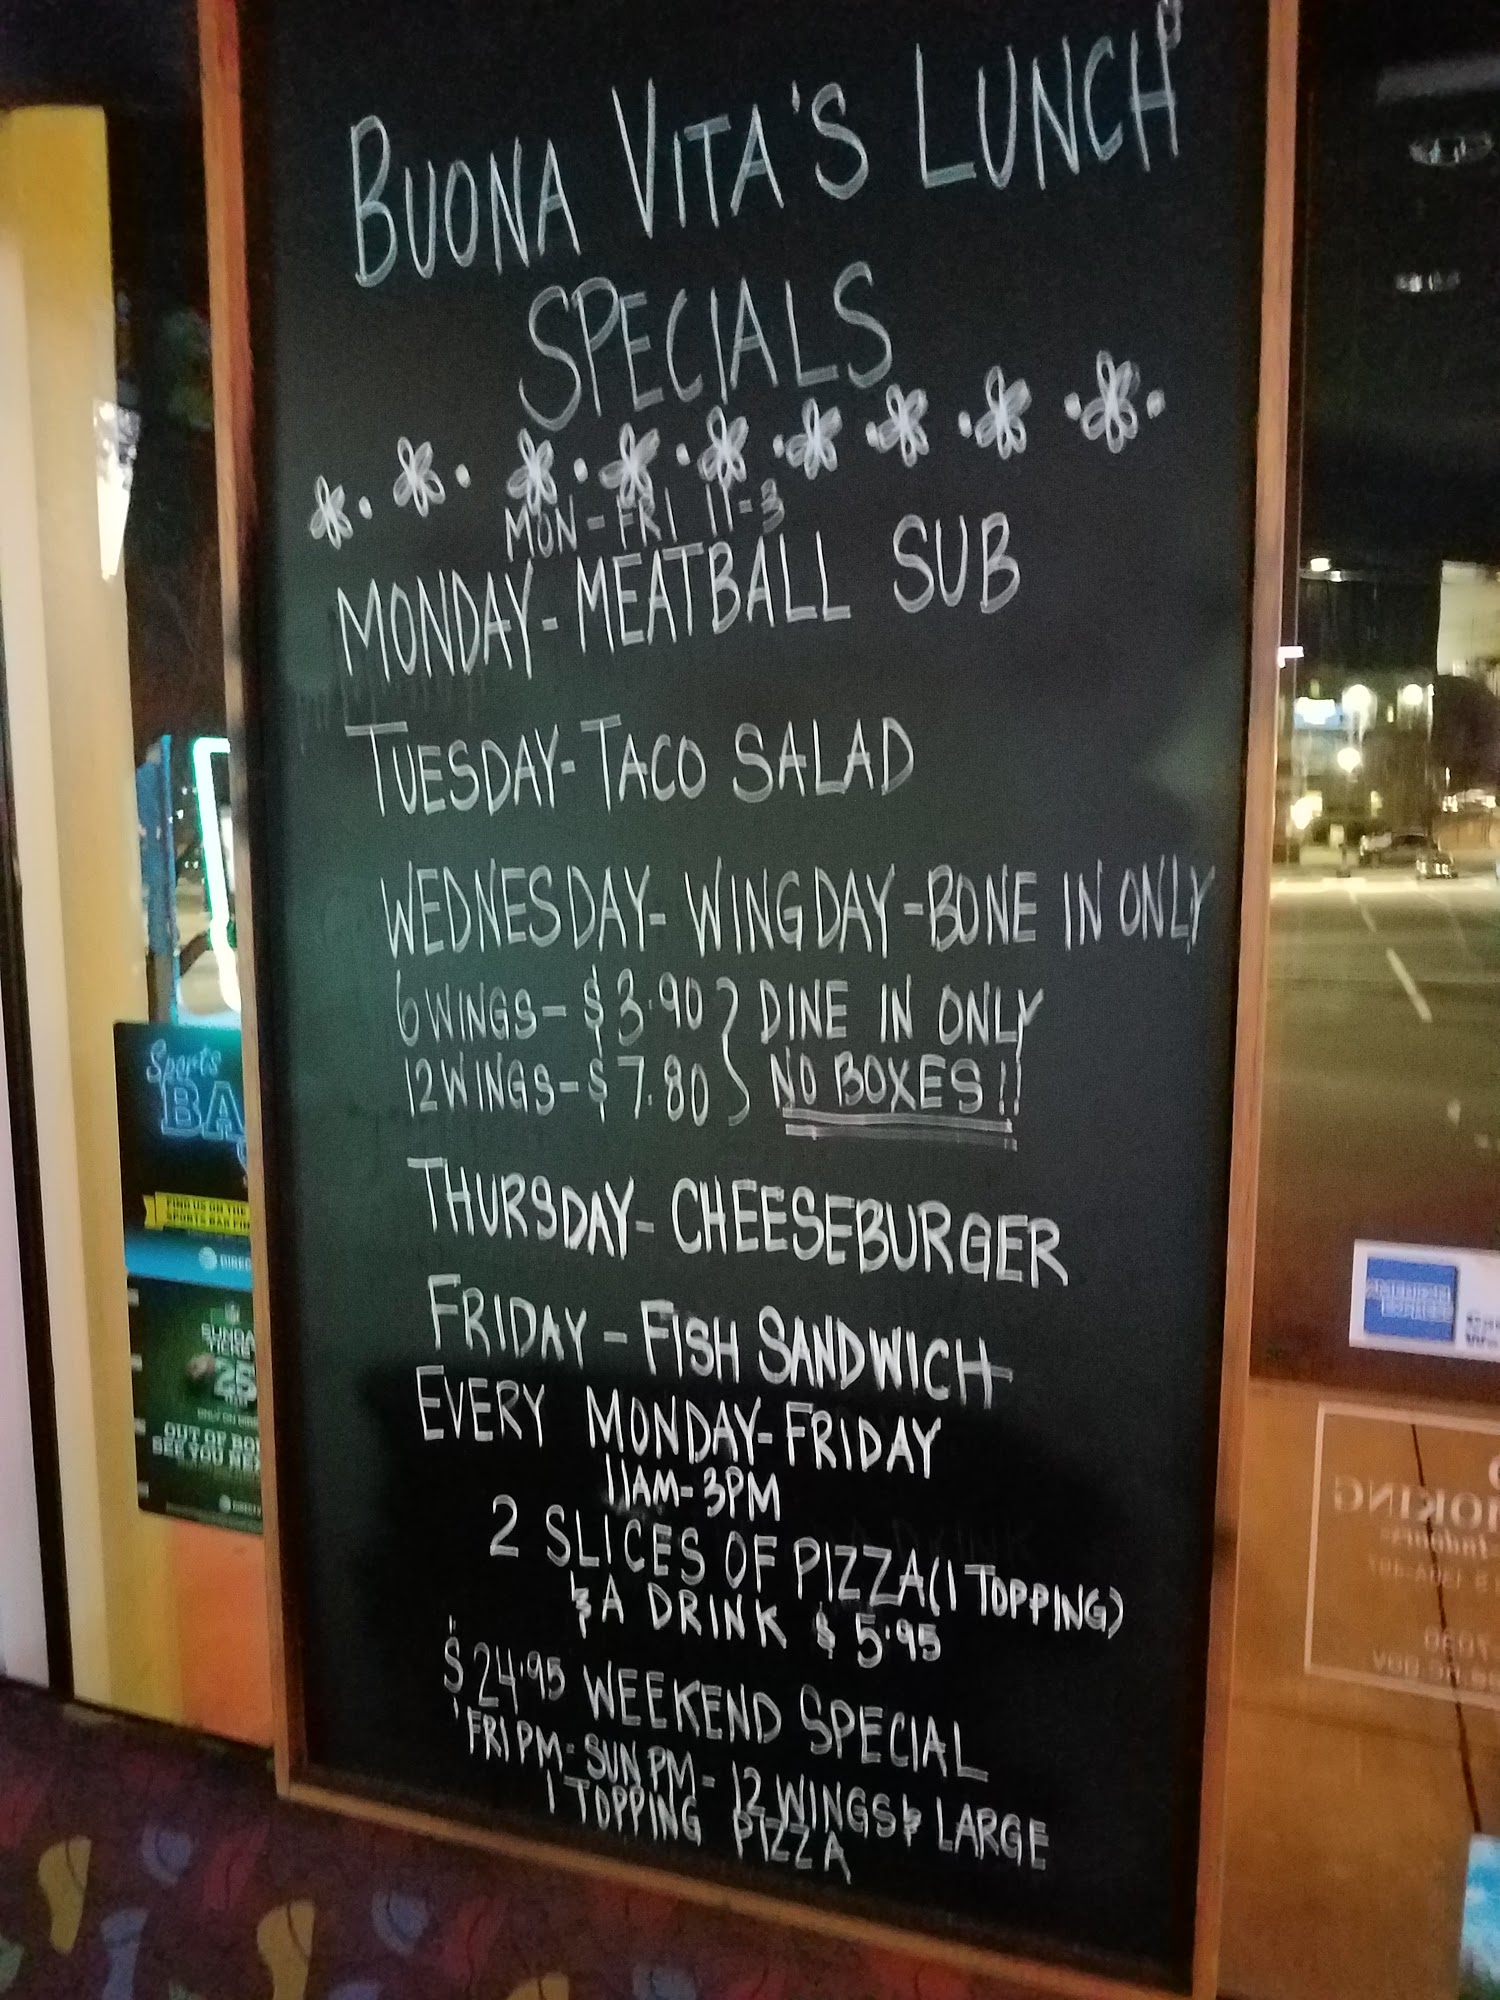 BUONA VITA'S LUNCH
SPECIALS
MON-FRI 11-3
MONDAY-MEATBALL SUB
TUESDAY-TACO SALAD
WEDNESDAY-WINGDAY-BONE IN ONLY
6 WINGS-$3.90 } DINE IN ONLY
12 WINGS-$7.80 } NO BOXES!!
THURSDAY-CHEESEBURGER
FRIDAY-FISH SANDWICH
EVERY MONDAY-FRIDAY
11AM-3PM
2 SLICES OF PIZZA (1 TOPPING)
& A DRINK $5.95
$24.95 WEEKEND SPECIAL
FRI PM-SUN PM-12 WINGS & LARGE
1 TOPPING PIZZA
Sports
BA
FIND US ON THE
SPORTS BAR FIN
DIREC
SUNDA
TICKE
25
OUT OF BO
SEE YOU NE
DIRECTV
AMERICAN
EXPRESS